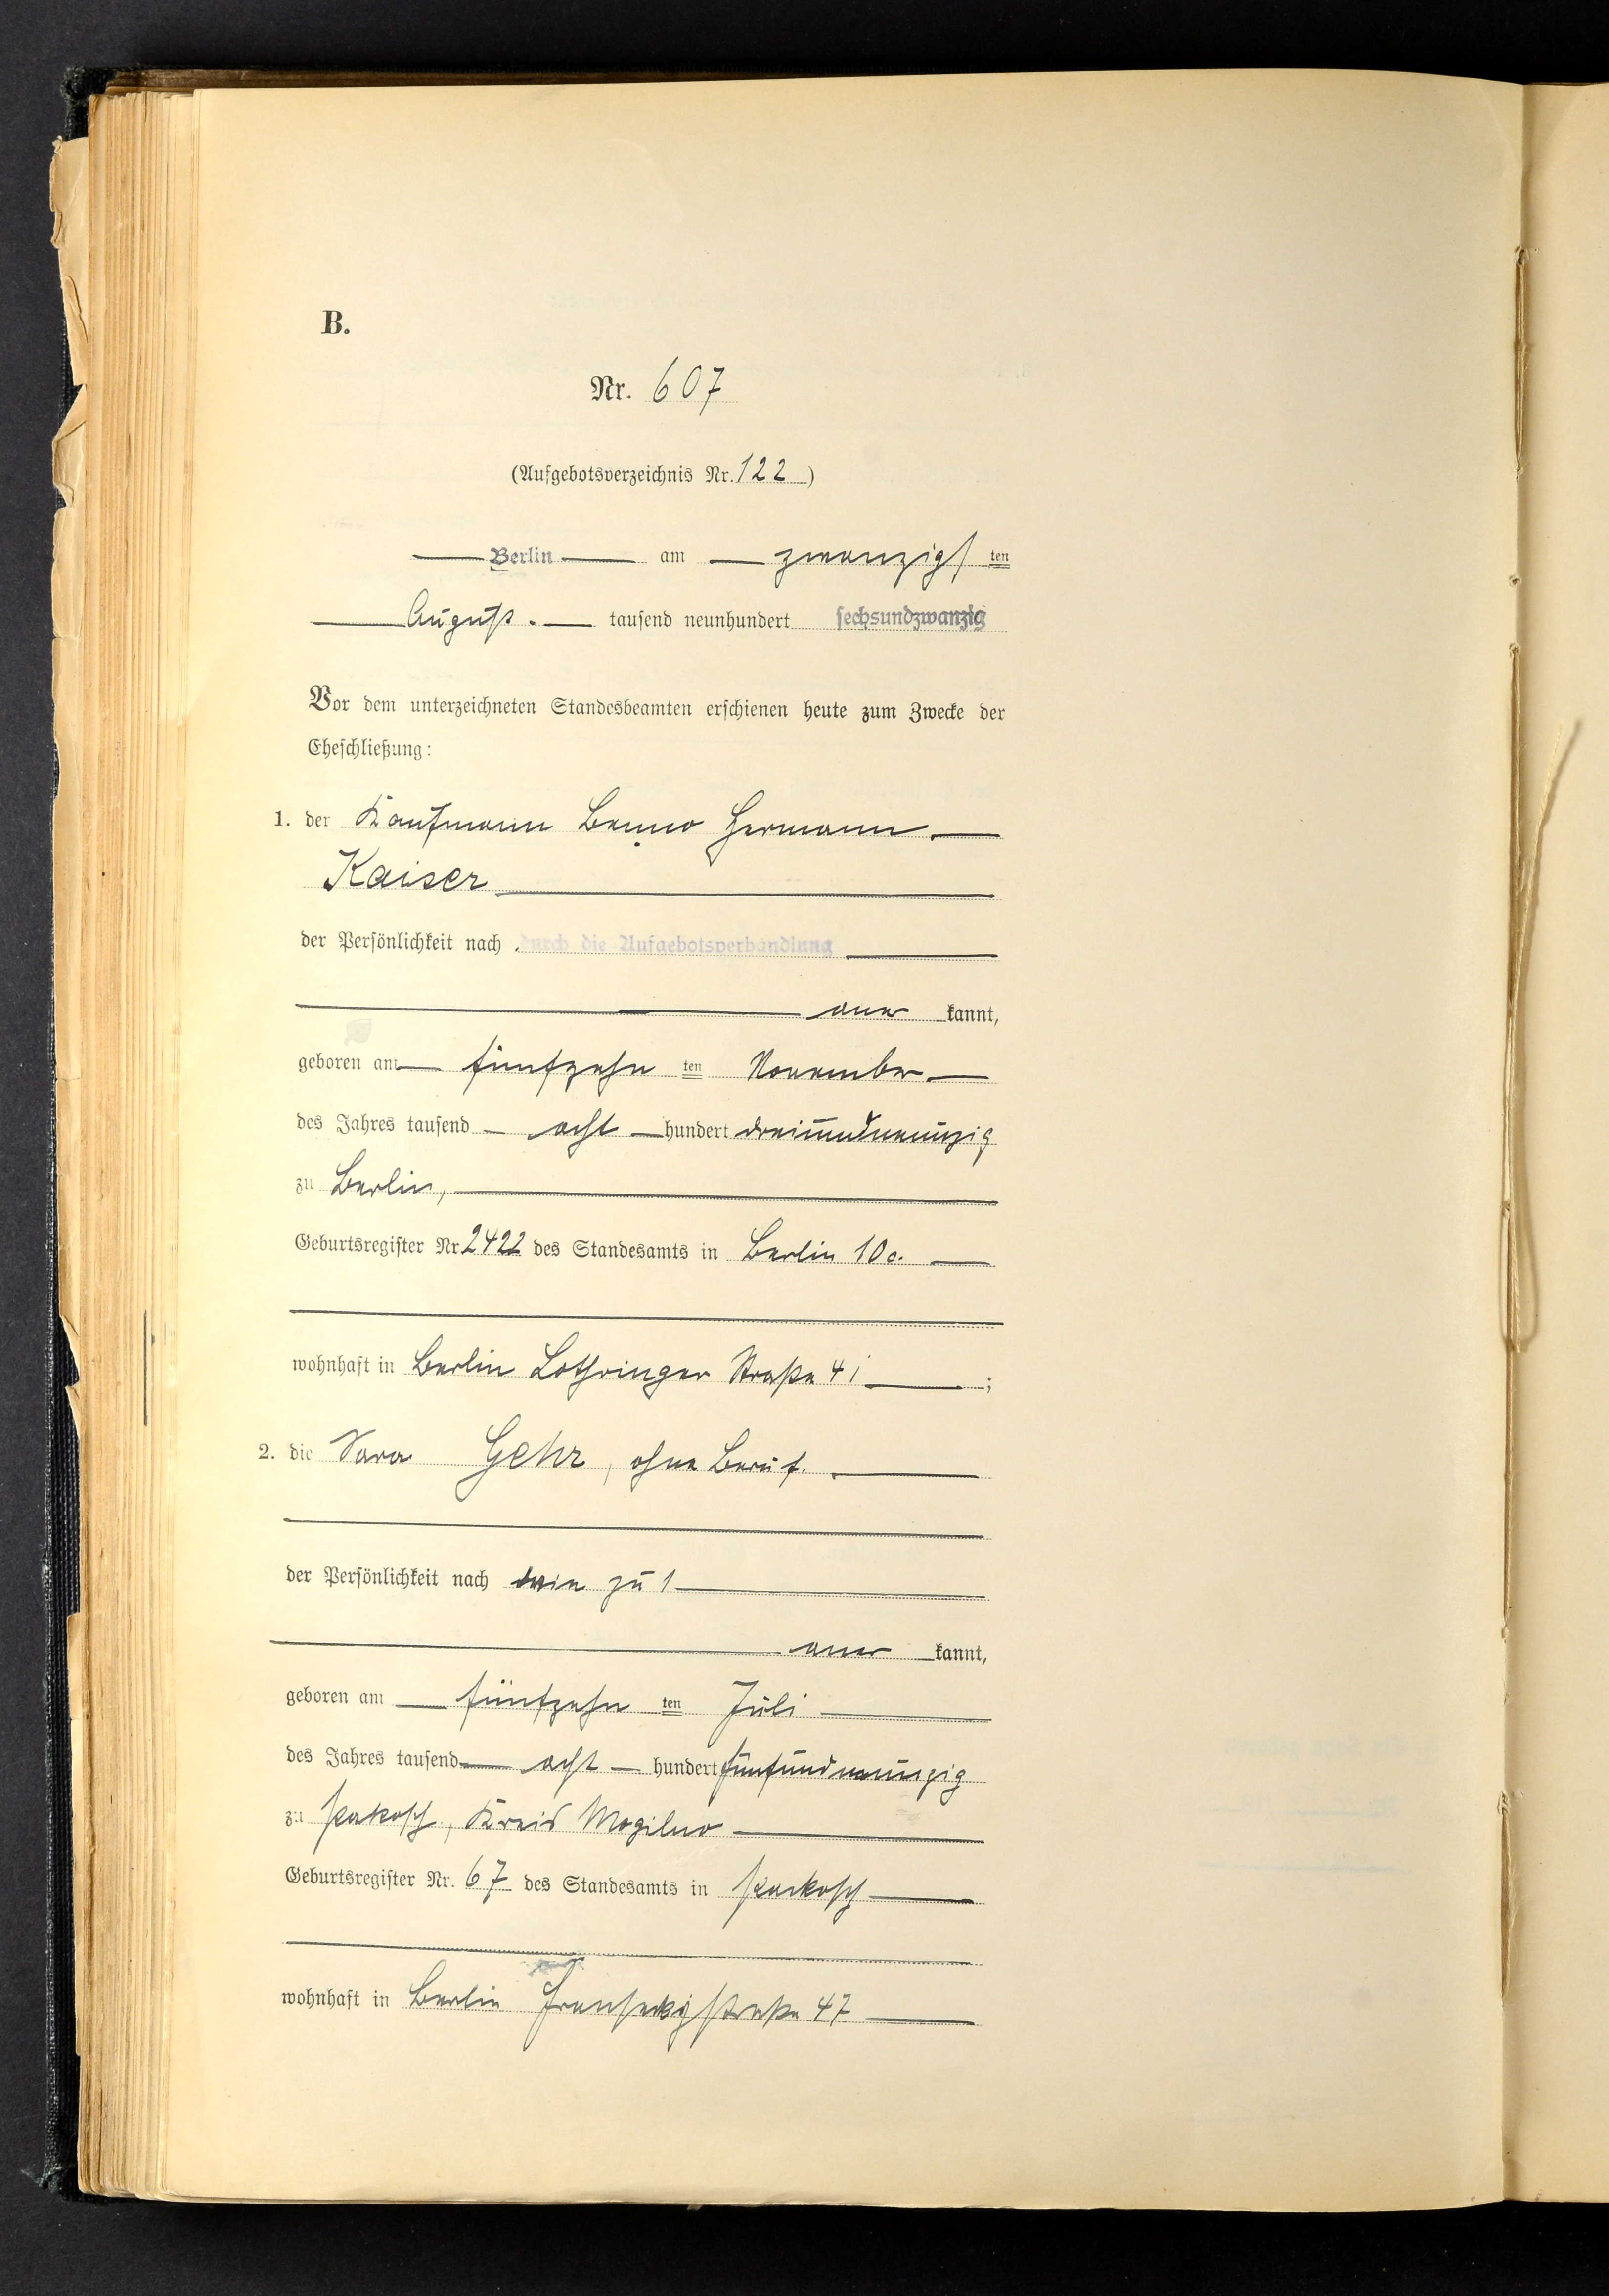 B.
Nr. 607
(Aufgebotsverzeichnis Nr. 122)
Berlin am zwanzigsten
August tausend neunhundert sechsundzwanzig
Vor dem unterzeichneten Standesbeamten erschienen heute zum Zwecke der
Eheschließung:
1. der Kaufmann Benno Hermann
Kaiser
der Persönlichkeit nach durch die Aufgebotsverhandlung
aner kannt,
geboren am fünfzehn ten November
des Jahres tausend acht hundert dreiundneunzig
zu Berlin,
Geburtsregister Nr. 2422 des Standesamts in Berlin 10c.
wohnhaft in Berlin Lothringer Straße 41;
2. die Sara Gehr, ohne Beruf.
der Persönlichkeit nach wie zu 1
aner kannt,
geboren am fünfzehn ten Juli
des Jahres tausend acht hundert fünfundneunzig
zu Pakosch, Kreis Mogilno
Geburtsregister Nr. 67 des Standesamts in Pakosch
wohnhaft in Berlin Franseckystraße 47